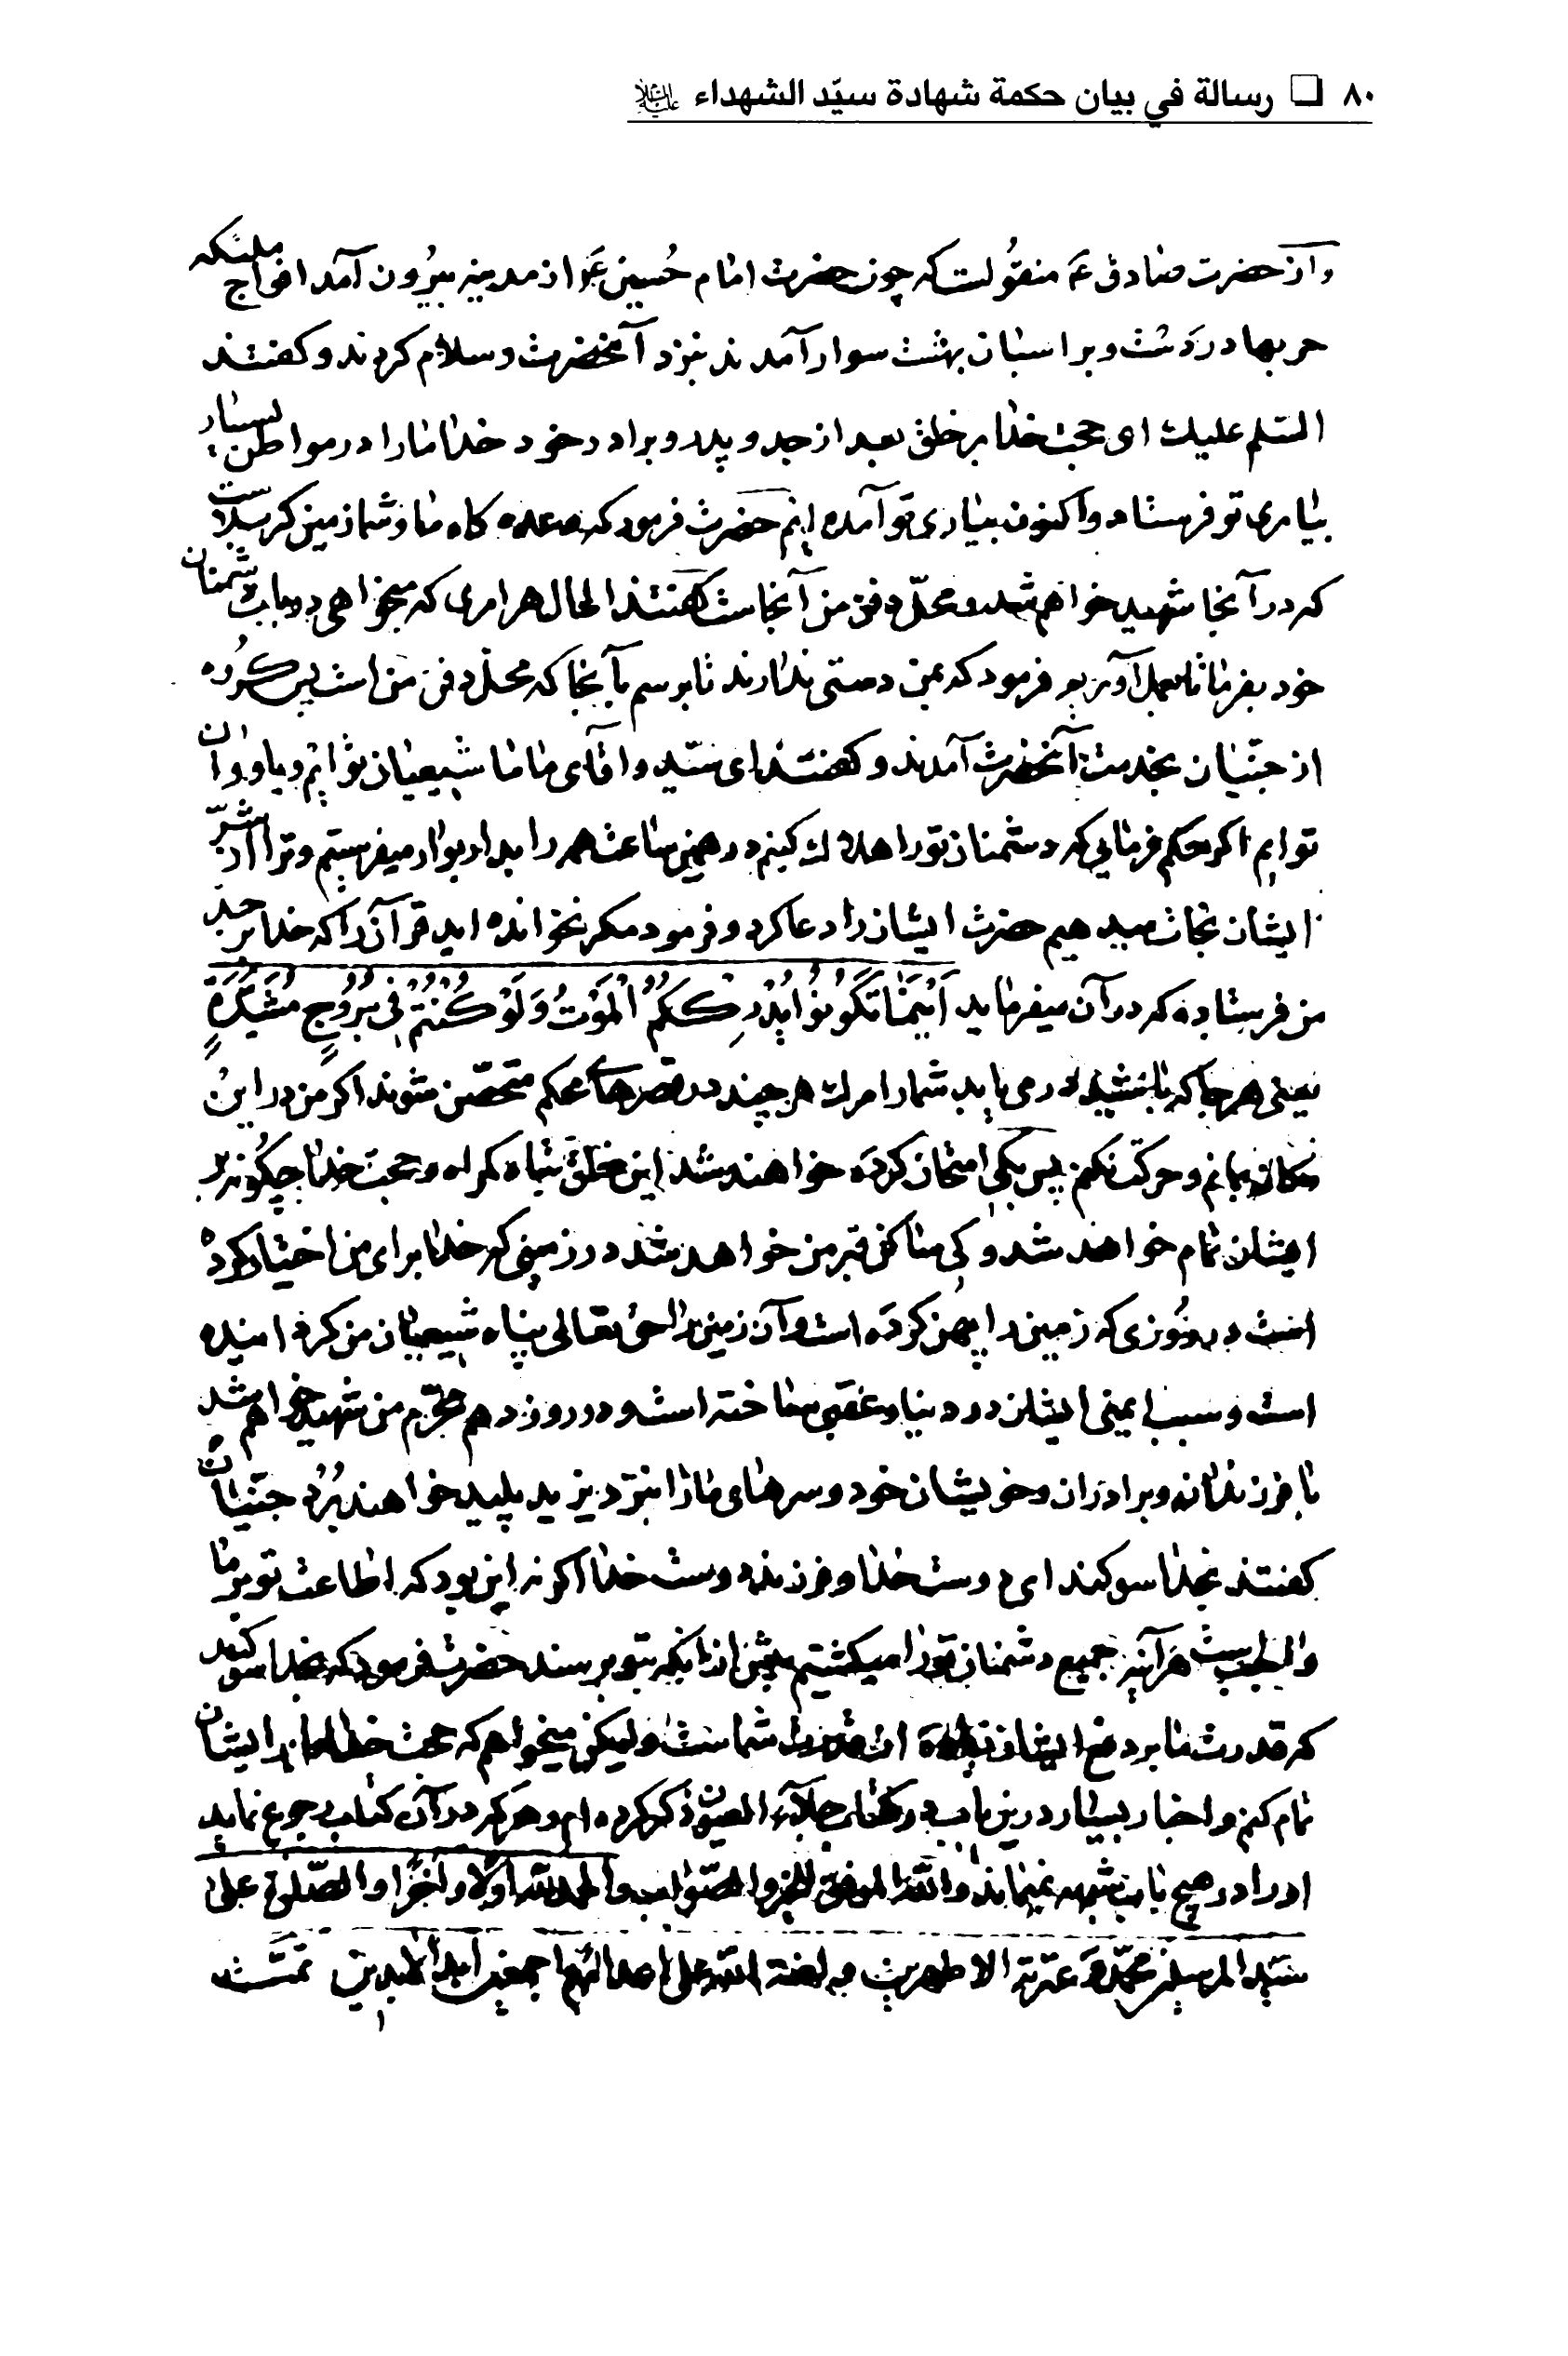 ٨٠ ❏ رسالة في بيان حكمة شهادة سيّد الشهداء عليه السلام
واز حضرت صادق ع منقولست که چون حضرت امام حُسین ع از مدینه بیرُون آمد افواج ملئکه
حربها در دست و بر اسبان بهشت سوار آمدند بنزد آنحضرت و سلام کردند و کفتند
السّلم علیك ای حجت خدا بر خلق بعد از جد و پدر و برادر خود خدا ما را در مواطن بسیار
بیاری تو فرستاد و اکنون بیاری تو آمده ایم حضرت فرمود که وعده کاه ما و شما زمین کربلاست
که در آنجا شهید خواهم شد و محلّ دفن من آنجاست کفتند الحال هر امری که میخواهی در باب دشمنان
خود بفرما تا بعمل آوریم فرمود که بمن دستی ندارند تا برسم بآنجا که محلّ دفن من است پس کرُوه
از جنّیان بخدمت آنحضرت آمدند و کفتند ای سیّد و آقای ما ما شیعیان تو ایم و یاوران
تو ایم اکر حکم فرمائی که دشمنان تو را هلاك کنیم در همین ساعت همه را بدار بوار میفرستیم و ترا از شرّ
ایشان نجات میدهیم حضرت ایشان را دعا کرد و فرمود مکر نخوانده اید قرآن را که خدا بر جدّ
من فرستاده که در آن میفرماید اَیْنَمٰا تَکُونُوا یُدْرِکْکُمُ الْمَوْتُ وَلَوْ کُنْتُمْ فِی بُرُوجٍ مُشَیَّدَةٍ
یعنی هر جا که باشید در می یابد شما را مرك هر چند در قصرهای محکم متحصّن شوید اکر من در این
مکان بمانم و حرکت نکنم پس بکی امتحان کرده خواهند شد این خلق تباه کمراه و حجت خدا چکونه بر
ایشان تمام خواهد شد و کی ساکن قبر من خواهد شد در زمینی که خدا برای من اختیار کرده
است در روُزی که زمین را پهن کرده است و آن زمین را حق تعالی پناه شیعیان من کردانیده
است و سبب ایمنی ایشان در دنیا و عقبی ساخته است و در روز دهم محرّم من شهید خواهم شد
با فرزندان و برادران و خویشان خود و سرهای ما را بنزد یزید پلید خواهند بُرد جنّیان
کفتند بخدا سوکند ای دوست خدا و فرزند دوست خدا اکر نه این بود که اطاعت تو بر ما
واجب است هرآینه جمیع دشمنان تو را میکشتیم پیش از اینکه بتو برسند حضرت فرمود که بخدا سوکند
که قدرت ما بر دفع ایشان زیاده از قدرت شماست ولیکن میخواهم که حجت خدا را بر ایشان
تمام کنم و اخبار بسیار درین باب در کتاب جلاء العیون ذکر کرده ام و هر که در آن کتاب رجوع نماید
او را در هیچ باب شبهه نمیماند و اللّه الموفق للخیر و الصّواب و الحمد للّه اوّلا و اخرا و الصّلوة علی
سیّد المرسلین محمّد و عترته الاطهرین و لعنة اللّه علی اعدائهم اجمعین ابد الآبدین تمّت